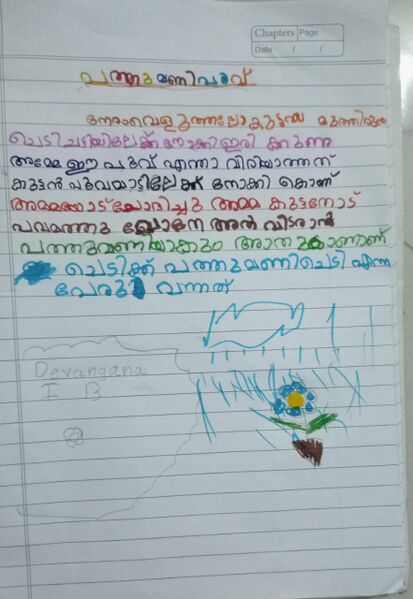 Chapters Page
Date / /
പത്തുമണിപൂവ്
നേരംവെളുത്തലോകുട്ടൻ മുത്തിരുത
ചെടിചട്ടിയിലേക്ക് നോക്കിഇരി ക്കുന്നു
അമ്മേ ഈ പൂവ് എന്താ വിരിയാത്തന്
കുട്ടൻ പൂവയാട്ടിലേക്ക് നോക്കി കൊണ്
അമ്മയോട്ചോദിച്ചു അമ്മ കുട്ടനോട്
പറഞ്ഞു മോനേ അത് വിടരാൻ
പത്തുമണിയാകും അതുകൊണാണ്
ചെടിക്ക് പത്തുമണിചെടി എന്ന
പേരു വന്നത്
Devangana
I B